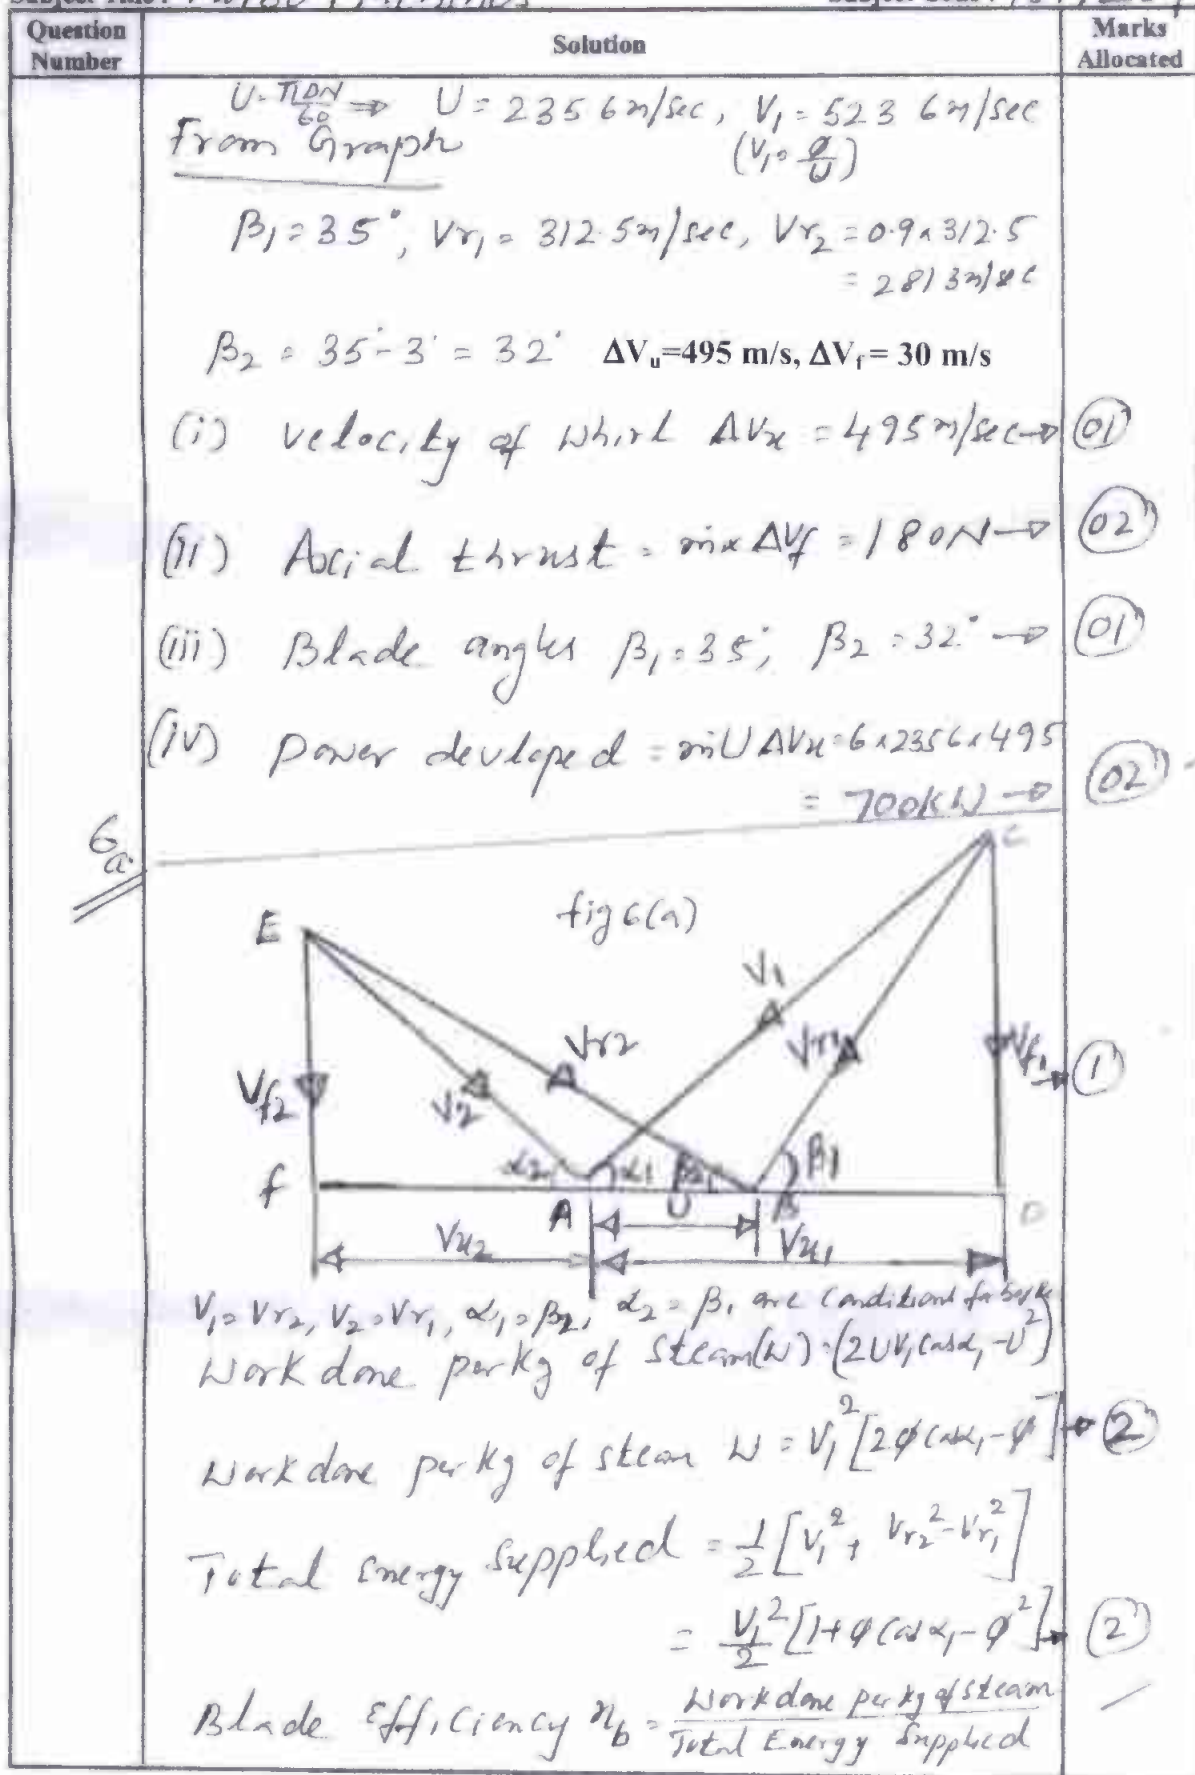 Question Number
Solution
Marks Allocated
U = πDN/60 ⇒ U = 235 6 m/sec, V₁ = 523 6 m/sec
From Graph (V₁ = φ/U)
β₁ = 35°, Vr₁ = 312.5 m/sec, Vr₂ = 0.9 x 312.5
= 281 3 m/sec
β₂ = 35° - 3° = 32° ΔVᵤ=495 m/s, ΔV_f= 30 m/s
(i) velocity of whirl ΔVu = 495 m/sec → 01
(ii) Axial thrust = ṁ x ΔVf = 180N → 02
(iii) Blade angles β₁ = 35°, β₂ = 32° → 01
(iv) power devloped = ṁU ΔVu = 6 x 235 6 x 495
= 700kW → 02
6a
fig 6(a)
E
C
V₁
Vr2
Vr1
Vf₁ → 1
Vf2
V2
α2 α1 β2 β1
f A U B D
Vu2 Vu1
V₁ = Vr₂, V₂ = Vr₁, α₁ = β₂, α₂ = β₁ are Conditions
Work done per kg of Steam (W) = (2UV₁ Cosα₁ - U²)
Work done per kg of steam W = V₁² [2φ Cosα₁ - φ²] → 2
Total Energy Supplied = 1/2 [V₁² + Vr₂² - Vr₁²]
= V₁²/2 [1 + φ Cosα₁ - φ²] → 2
Blade Efficiency ηb = Work done per kg of steam / Total Energy Supplied